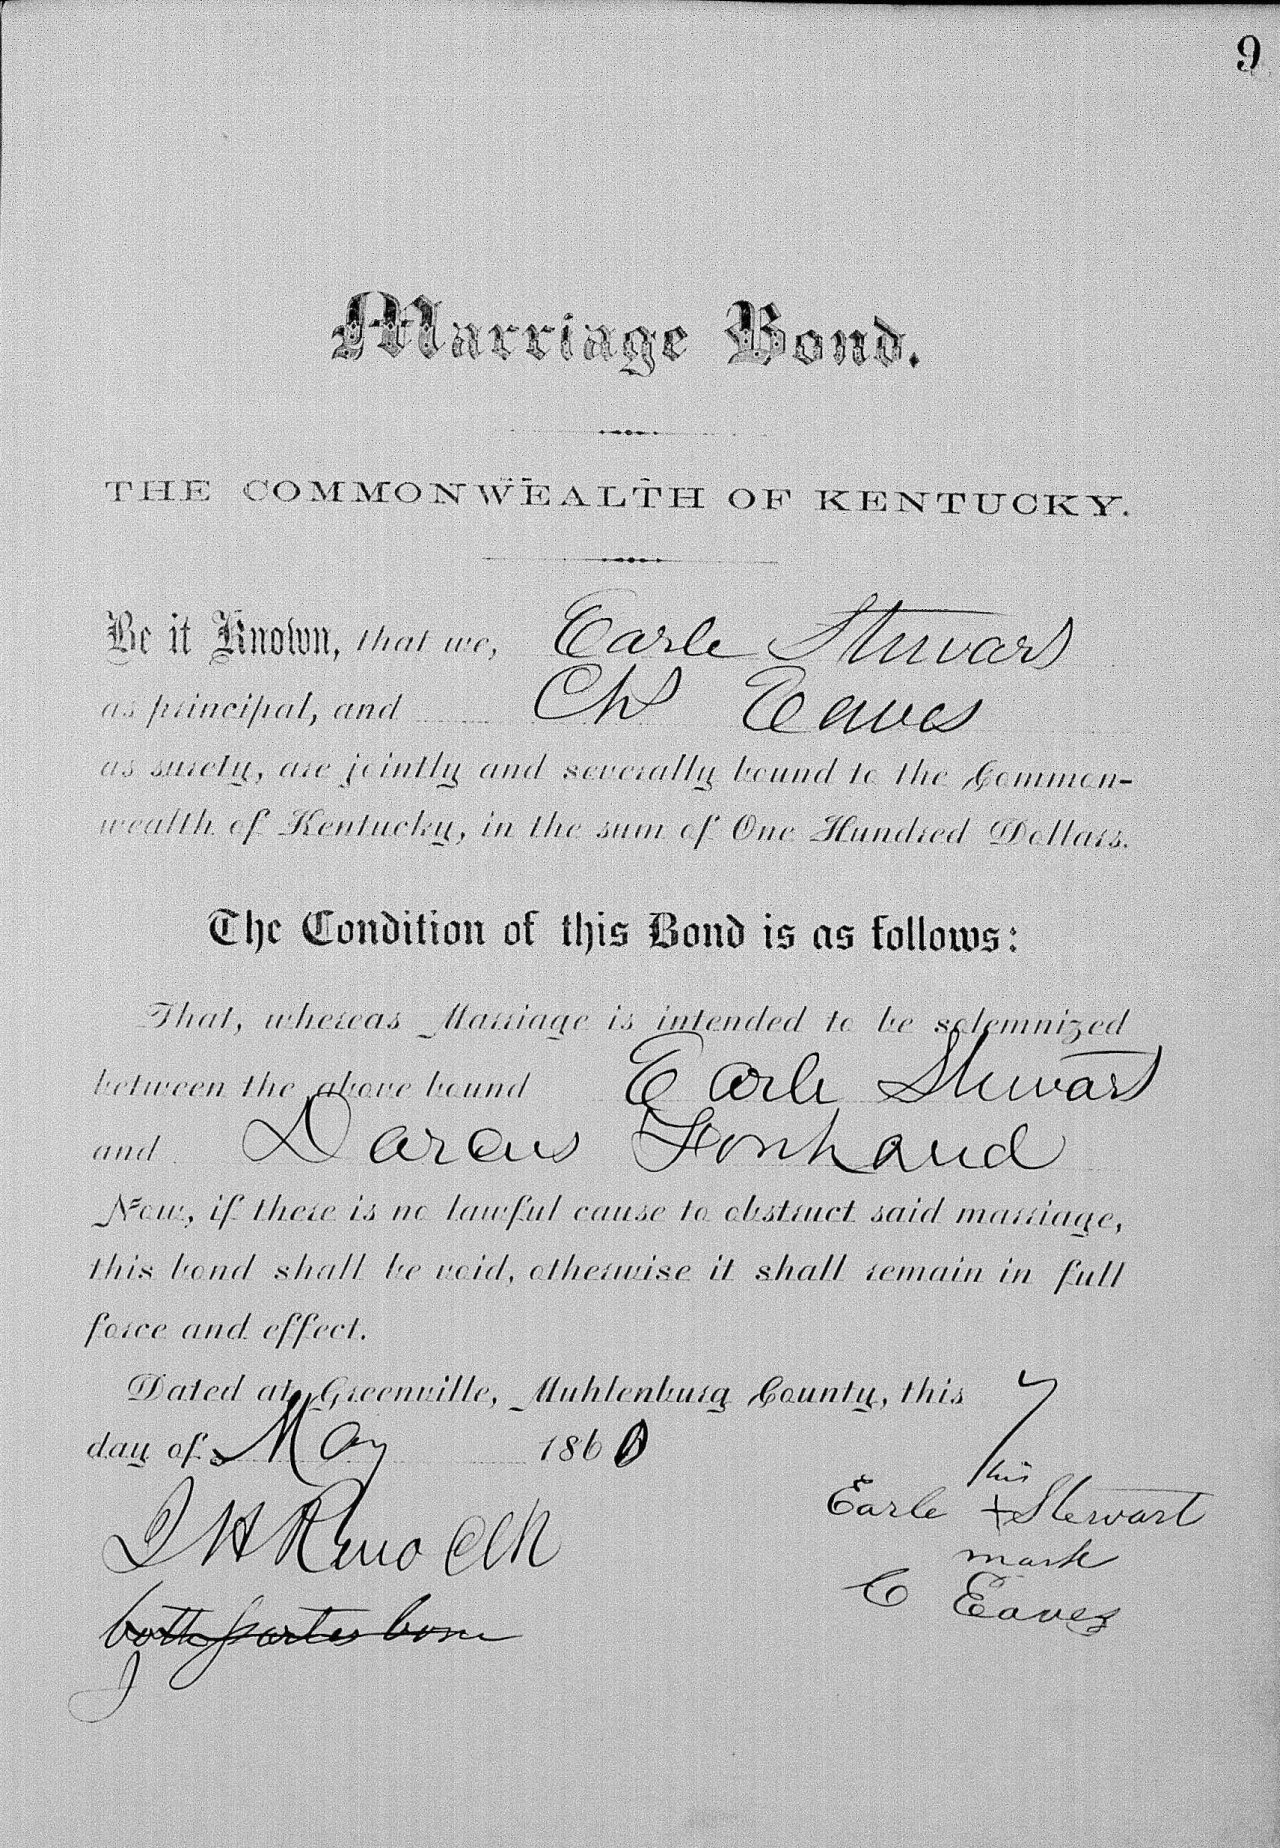 9
Marriage Bond.
THE COMMONWEALTH OF KENTUCKY.
Be it Known, that we, Earle Stewart
as principal, and Chs Eaves
as surety, are jointly and severally bound to the Common-
wealth of Kentucky, in the sum of One Hundred Dollars.
The Condition of this Bond is as follows:
That, whereas Marriage is intended to be solemnized
between the above bound Earle Stewart
and Darcus
Now, if there is no lawful cause to obstruct said marriage,
this bond shall be void, otherwise it shall remain in full
force and effect.
Dated at Greenville, Muhlenburg County, this 7
day of May 186
his
Earle + Stewart
mark
J H Reno Clk
C Eaves
both parties born